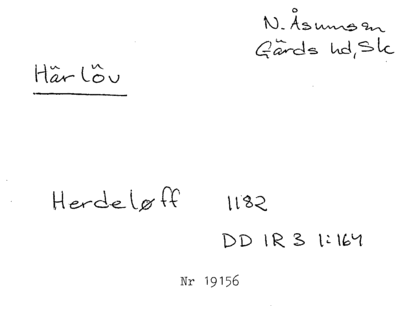 N. Åsumsen
Gärds hd, Sk
Härlöv
Herdeløff 1182
DD 1R 3 1:164
Nr 19156